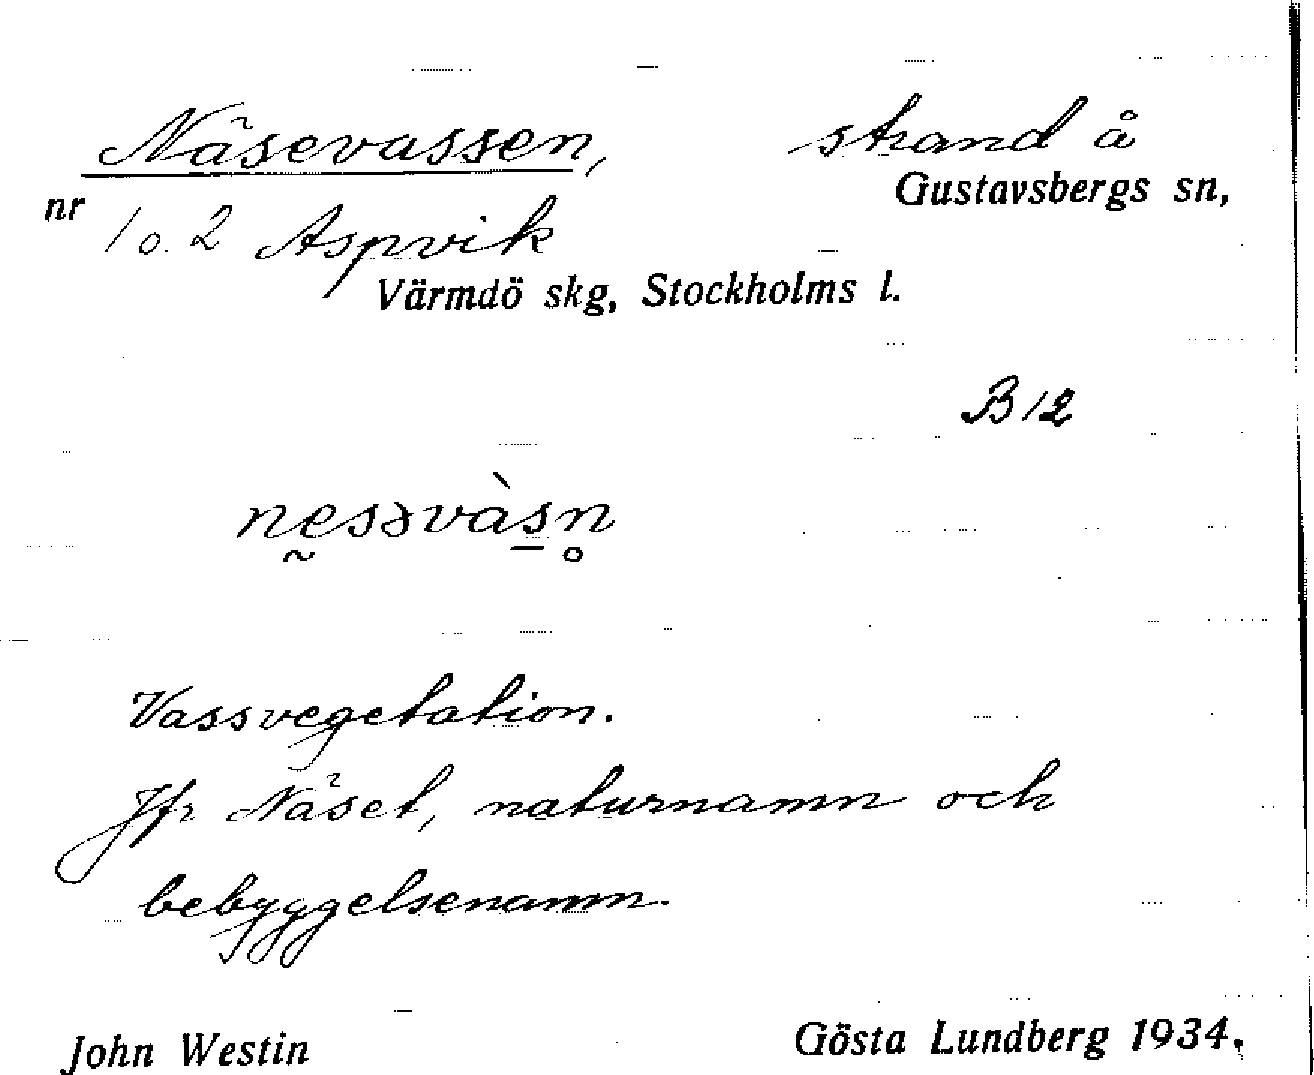 Näsevassen, strand å
nr Gustavsbergs sn,
1 o. 2 Aspvik
Värmdö skg, Stockholms l.
B 12
nḛsəvàs̠n̥
Vassvegetation.
Jfr Näset, naturnamn och
bebyggelsenamn.
John Westin Gösta Lundberg 1934.